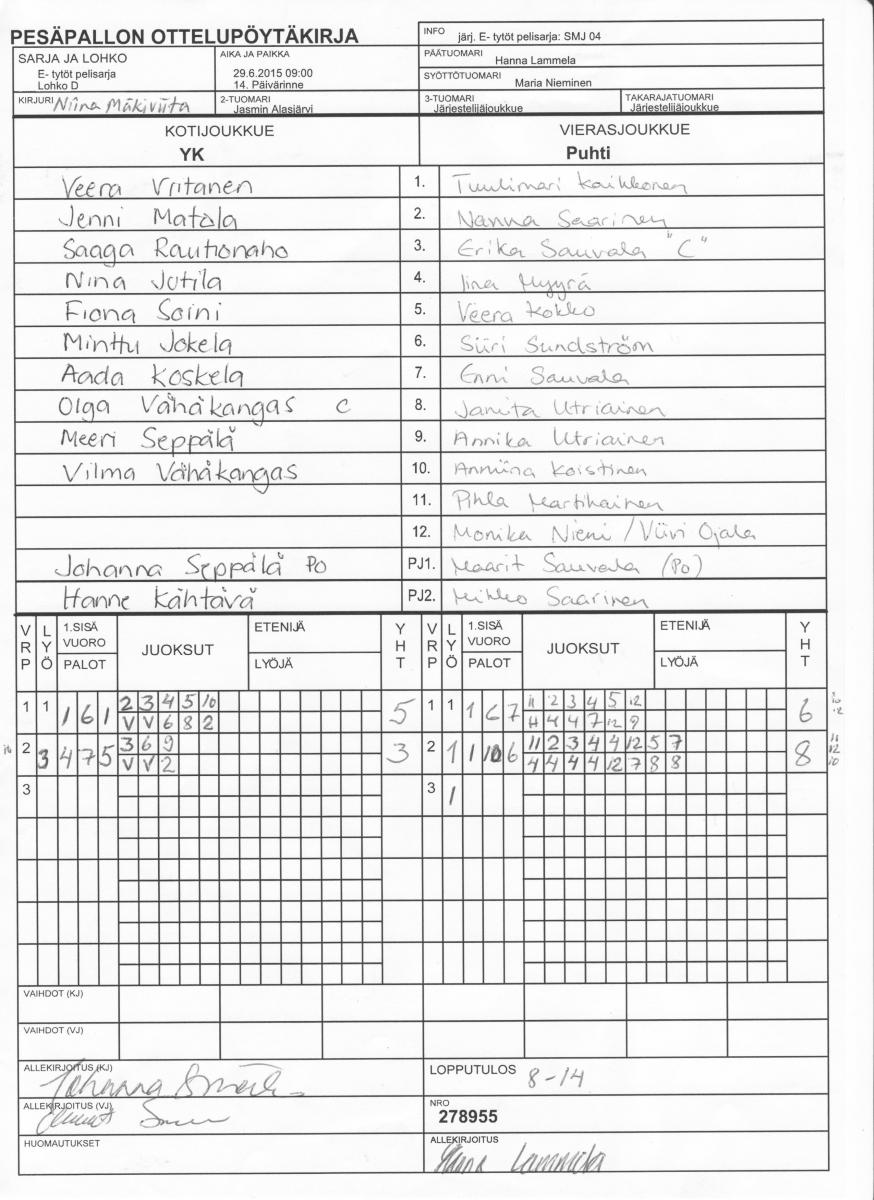 PESÄPALLON OTTELUPÖYTÄKIRJA
INFO järj. E- tytöt pelisarja: SMJ 04
SARJA JA LOHKO
E- tytöt pelisarja
Lohko D
AIKA JA PAIKKA
29.6.2015 09:00
14. Päivärinne
PÄÄTUOMARI
Hanna Lammela
SYÖTTÖTUOMARI
Maria Nieminen
KIRJURI Niina Mäkiviita
2-TUOMARI
Jasmin Alasjärvi
3-TUOMARI
Järjestelijäjoukkue
TAKARAJATUOMARI
Järjestelijäjoukkue
KOTIJOUKKUE
YK
VIERASJOUKKUE
Puhti
Veera Viitanen 1. Tuulimari Kaikkonen
Jenni Matola 2. Nanna Saarinen
Saaga Rautionaho 3. Erika Sauvala "C"
Nina Jutila 4. Iina Myyrä
Fiona Soini 5. Veera Kokko
Minttu Jokela 6. Siiri Sundström
Aada Koskela 7. Enni Sauvala
Olga Vähäkangas C 8. Janita Utriainen
Meeri Seppälä 9. Annika Utriainen
Vilma Vähäkangas 10. Anniina Koistinen
11. Pihla Martikainen
12. Monika Niemi / Viivi Ojala
Johanna Seppälä PO PJ1. Maarit Sauvala (PO)
Hanne Kähtävä PJ2. Mikko Saarinen
VRP LYÖ 1.SISÄ VUORO PALOT JUOKSUT ETENIJÄ LYÖJÄ YHT VRP LYÖ 1.SISÄ VUORO PALOT JUOKSUT ETENIJÄ LYÖJÄ YHT
1 1 1 6 1 2 3 4 5 10 5 1 1 1 6 7 11 2 3 4 5 12 6
V V 6 8 2 4 4 7 12 9
2 3 4 7 5 3 6 9 3 2 1 1 10 6 11 2 3 4 4 12 5 7 8
V V 2 4 4 4 4 12 7 8 8
3 3 1
VAIHDOT (KJ)
VAIHDOT (VJ)
ALLEKIRJOITUS (KJ) Johanna
LOPPUTULOS 8-14
ALLEKIRJOITUS (VJ)
NRO
278955
HUOMAUTUKSET
ALLEKIRJOITUS
Hanna Lammela